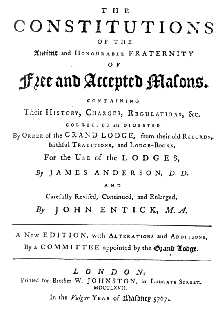 THE
CONSTITUTIONS
OF THE
Antient and HONOURABLE FRATERNITY
OF
Free and Accepted Masons.
CONTAINING
Their HISTORY, CHARGES, REGULATIONS, &c.
COLLECTED and DIGESTED
By ORDER of the GRAND LODGE, from their old RECORDS,
faithful TRADITIONS, and LODGE-BOOKS,
For the USE of the LODGES,
By JAMES ANDERSON, D. D.
AND
Carefully Revised, Continued, and Enlarged,
By JOHN ENTICK, M. A.
A NEW EDITION, with ALTERATIONS and ADDITIONS,
By a COMMITTEE appointed by the Grand Lodge.
LONDON:
Printed for Brother W. JOHNSTON, in LUDGATE STREET.
MDCCLXVII.
In the Vulgar YEAR of Masonry 5767.